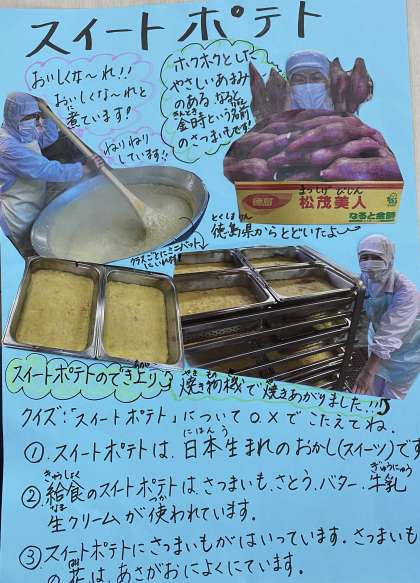 スイートポテト
おいしくな〜れ!!
おいしくな〜れと
煮ています!
ねりねり
しています!!
ホクホクとした
やさしいあまみ
のある、なると
きんとき
金時という名前
のさつまいもです!
まつしげ びじん
徳島 松茂美人
なると金時
とくしま けん
徳島県からとどいたよ〜
クラスごとにミニバットに
スイートポテトのでき上がり♪
やき もの き
焼き物機で焼きあがりました!!♪
クイズ:「スイートポテト」について○、×でこたえてね。
にほん う
①、スイートポテトは、日本生まれのおかし(スイーツ)です
きゅうしょく ぎゅうにゅう
②給食のスイートポテトは、さつまいも、さとう、バター、牛乳
なま つか
生クリームが使われています。
③スイートポテトにさつまいもがはいっています。さつまいも
の花は、あさがおによくにています。